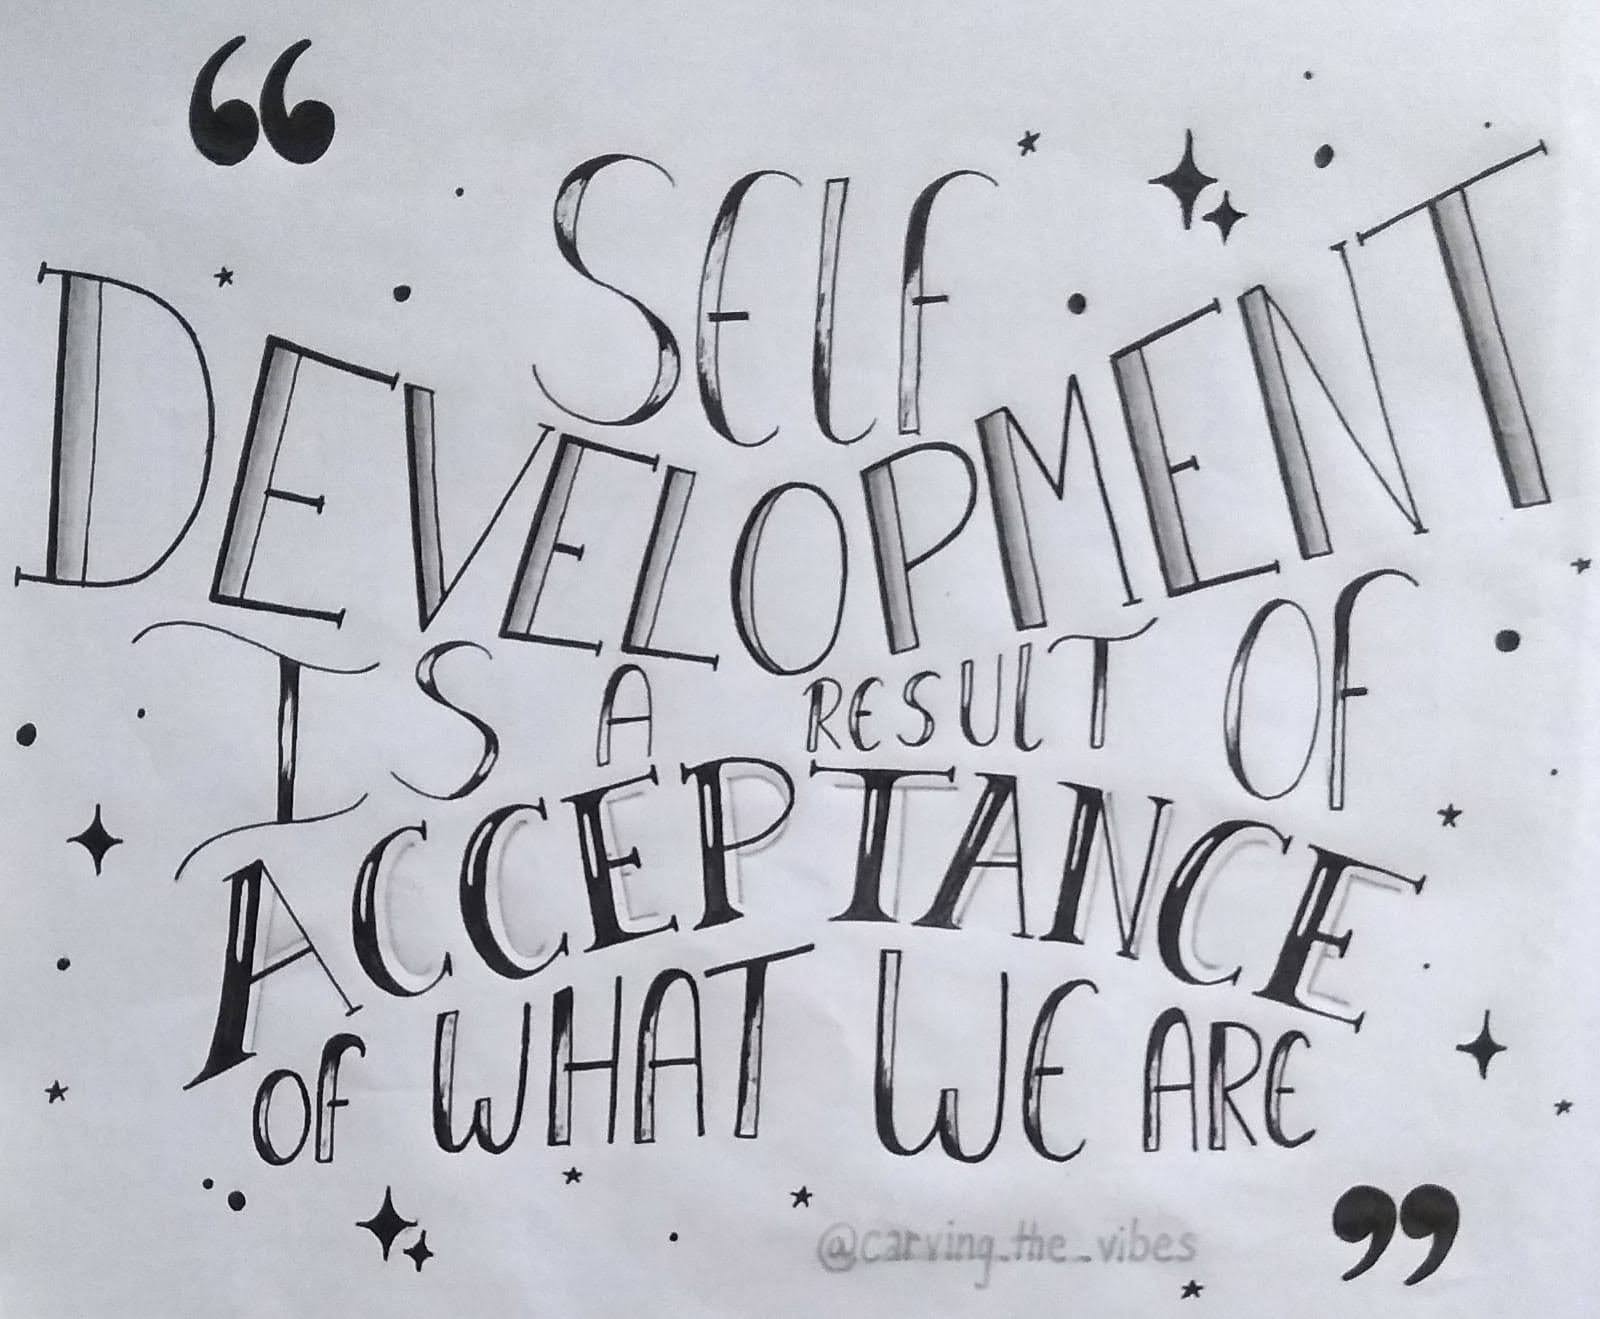 “
SELF
DEVELOPMENT
IS A RESULT OF
ACCEPTANCE
OF WHAT WE ARE
”
@carving_the_vibes